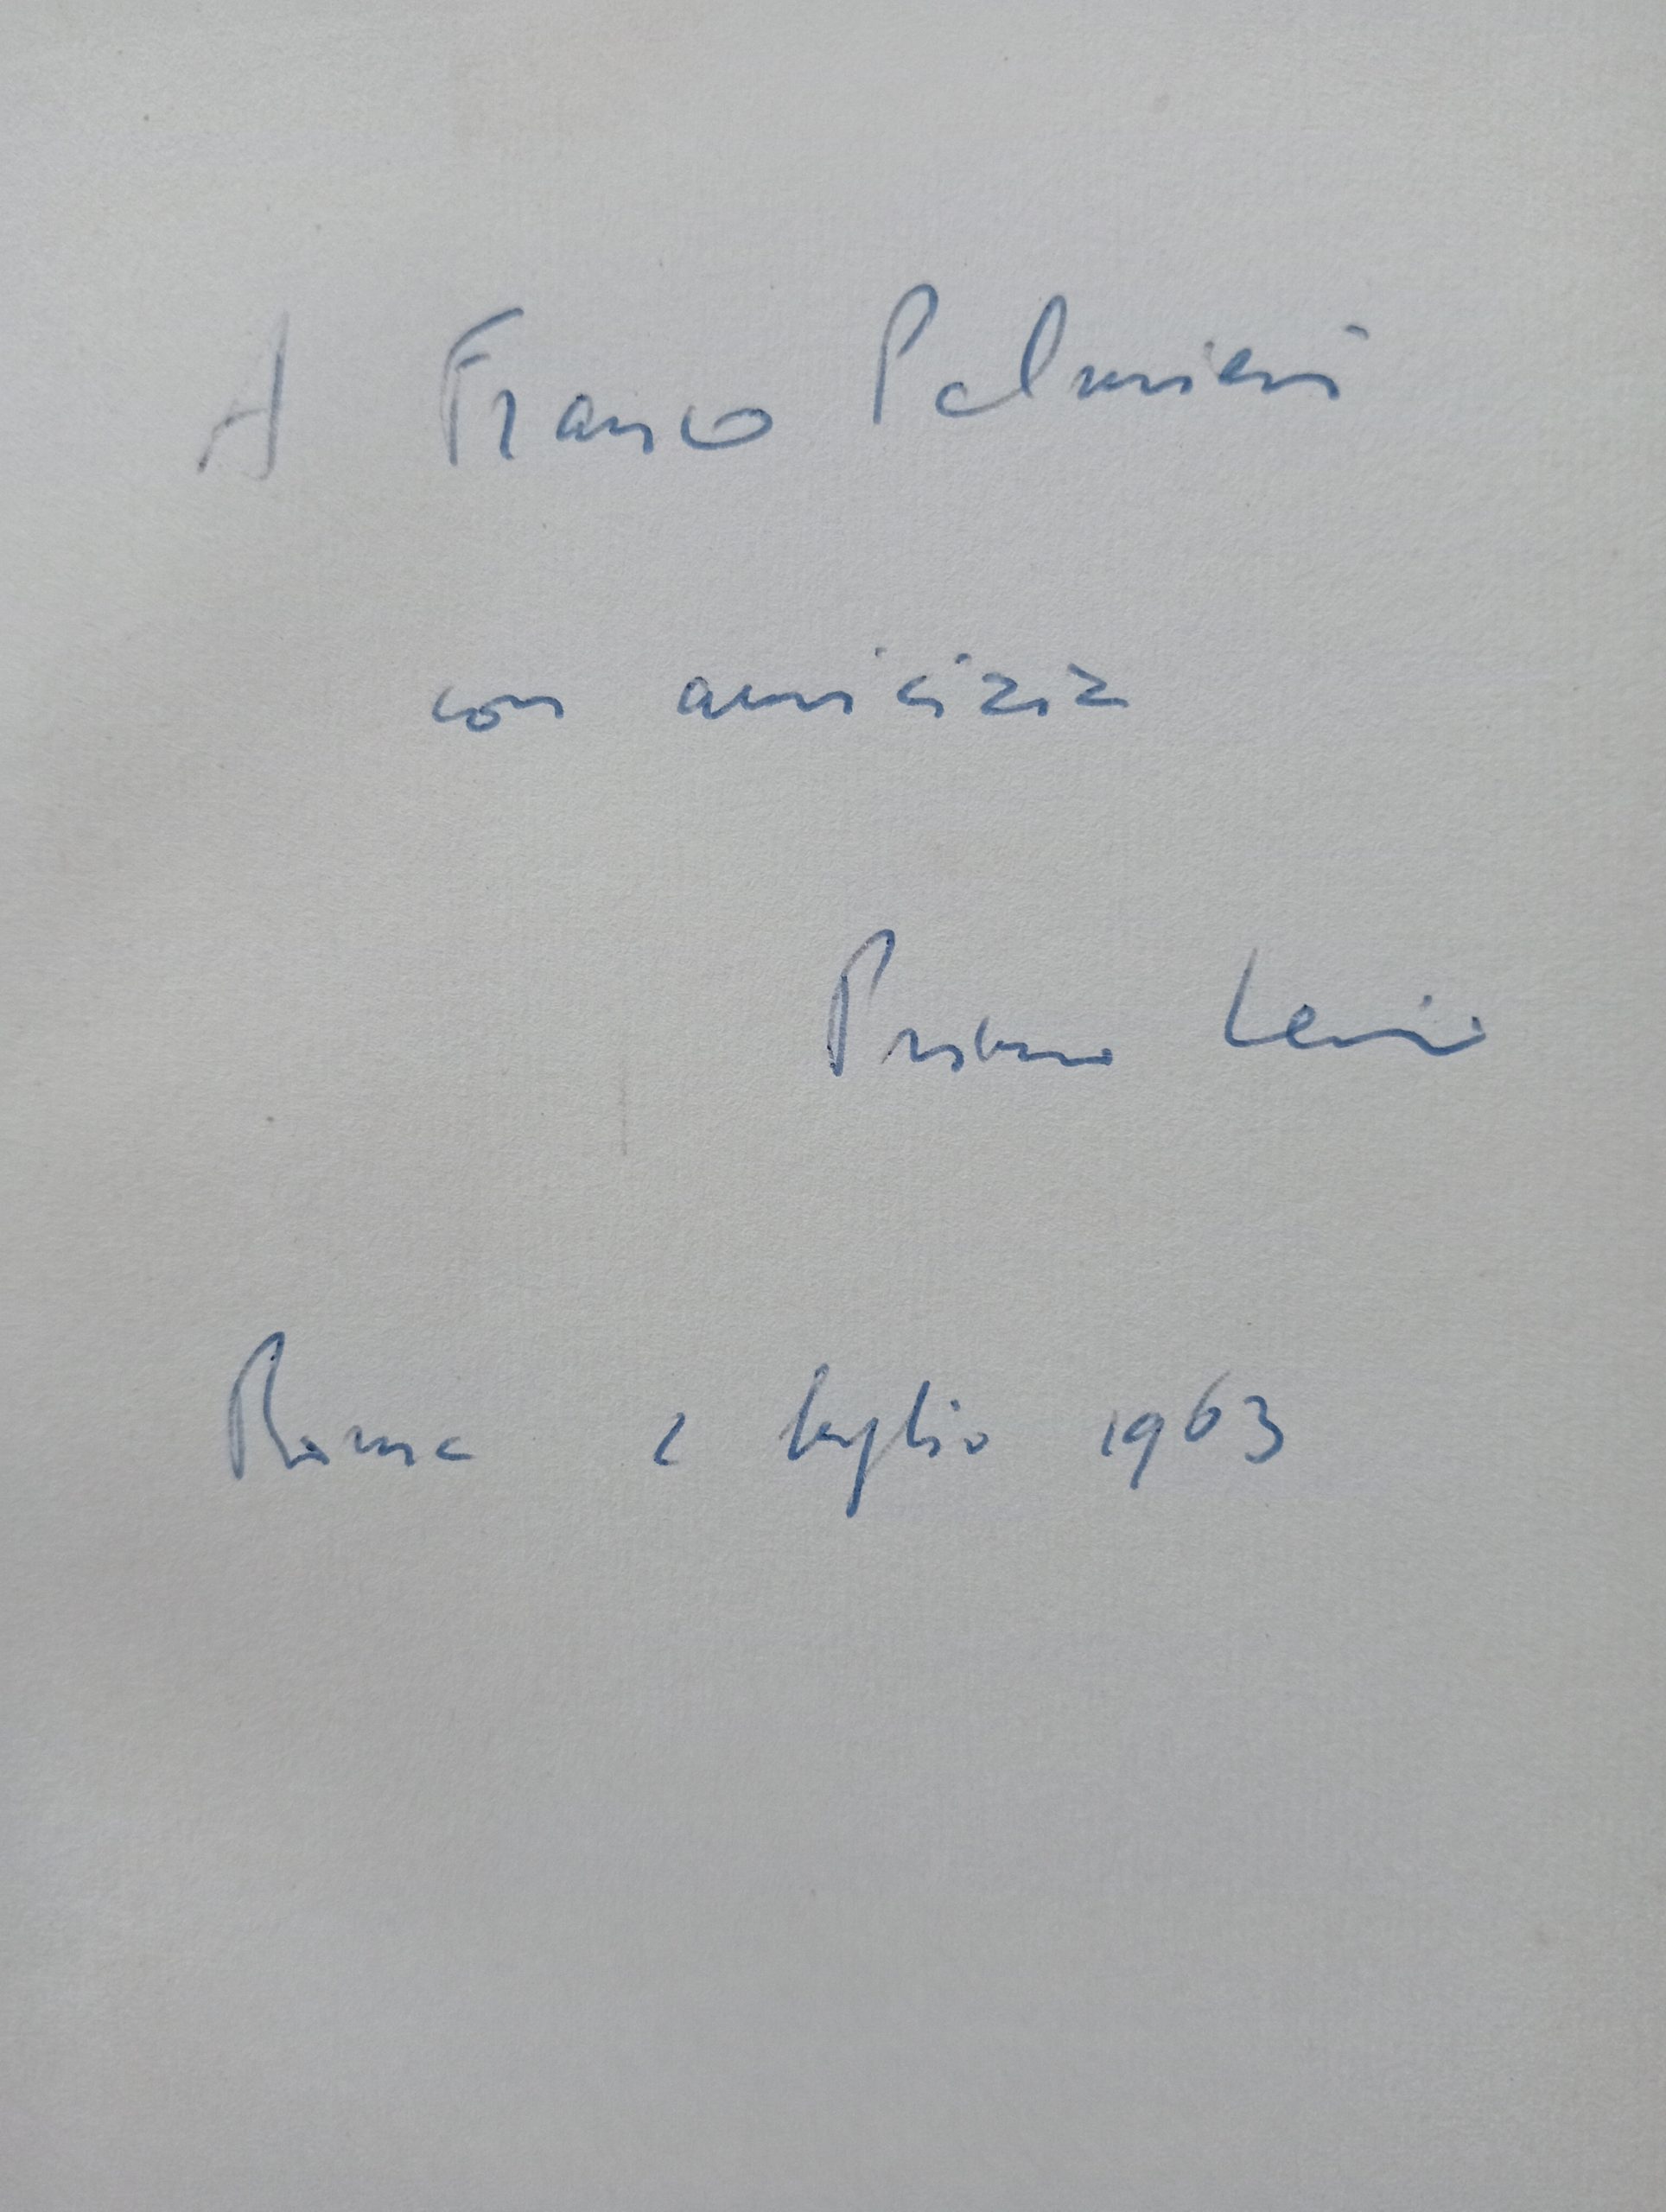 A Franco Palmieri
con amicizia
Primo Levi
Roma 2 luglio 1963